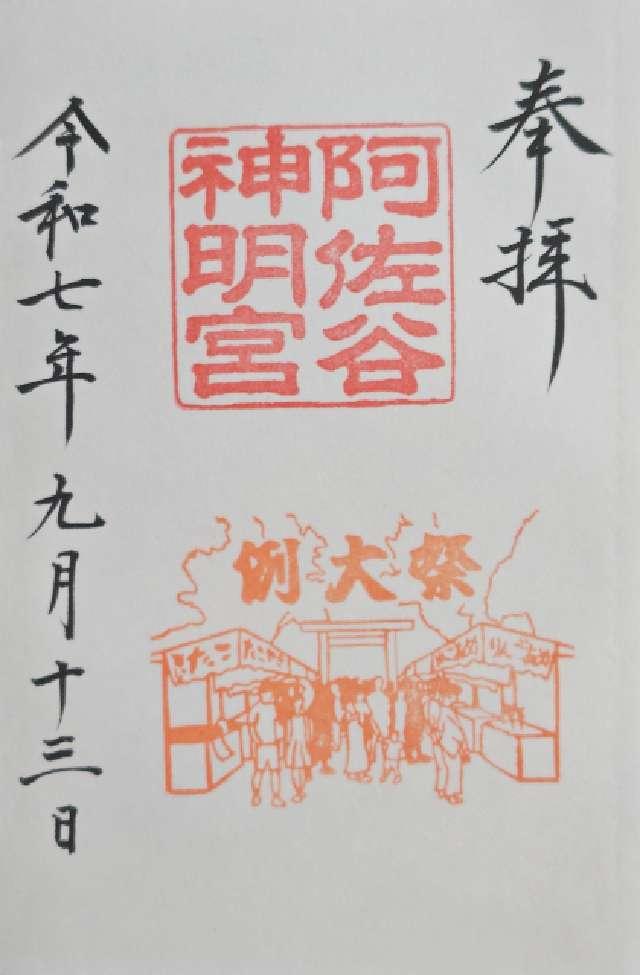 奉拝
阿佐谷
神明宮
例大祭
令和七年九月十三日